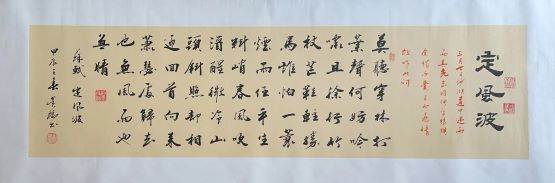 定風波
三月七日沙湖道中遇雨
雨具先去同行皆狼狽
余獨不覺已而遂晴
故作此詞
莫聽穿林打
葉聲何妨吟
嘯且徐行竹
杖芒鞋輕勝
馬誰怕一蓑
煙雨任平生
料峭春風吹
酒醒微冷山
頭斜照卻相
迎回首向來
蕭瑟處歸去
也無風雨也
無晴
蘇軾 定風波
甲辰之春